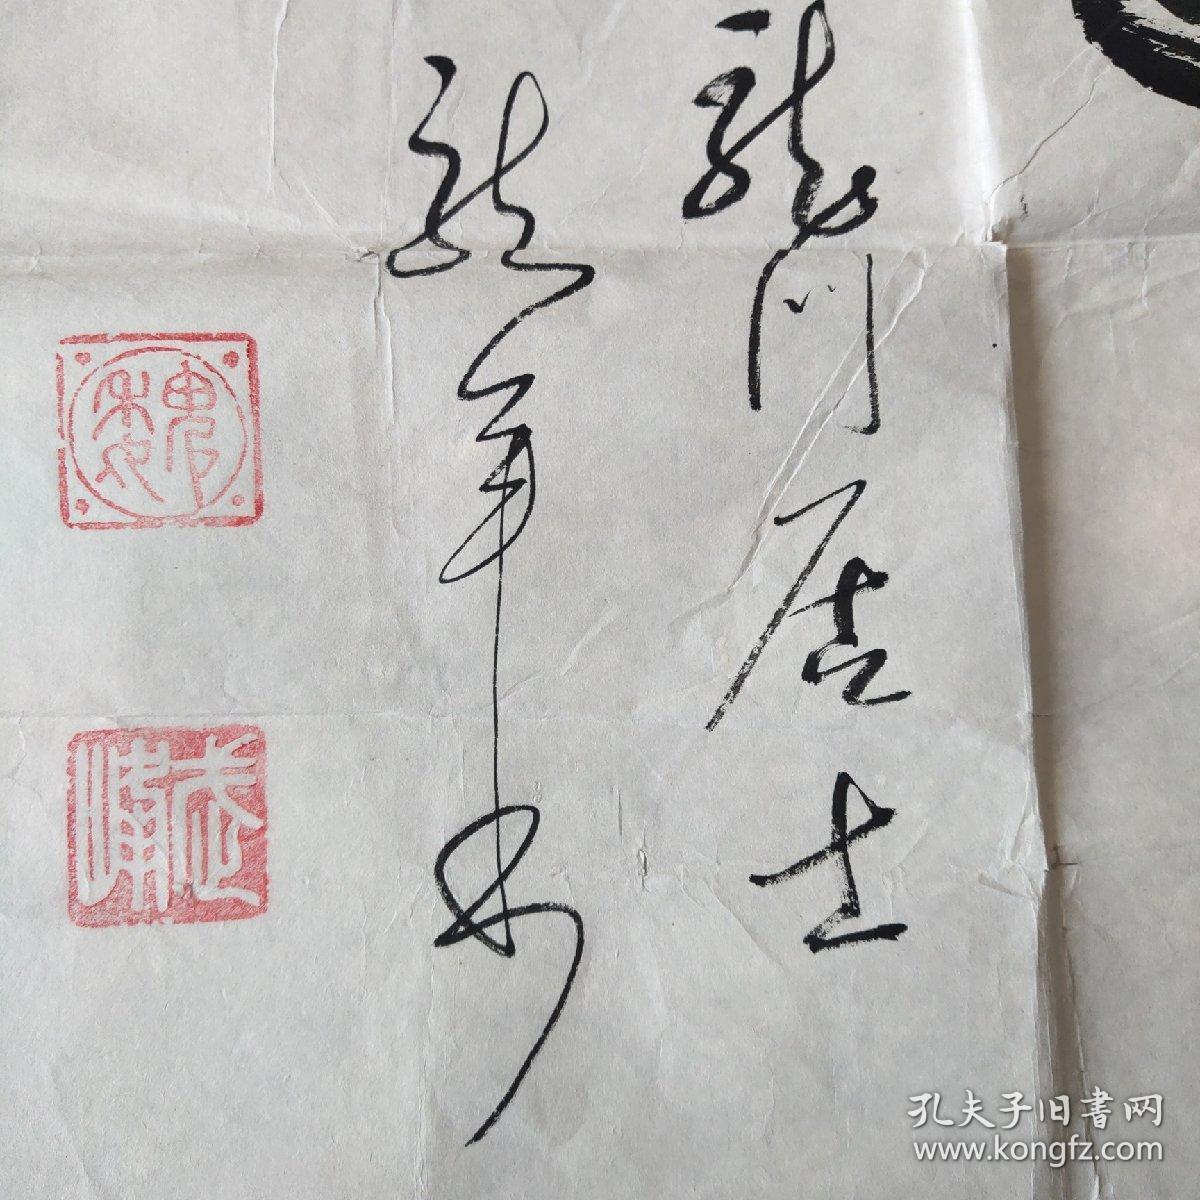 龍門居士
龍年书
魏
孔夫子旧書网
www.kongfz.com